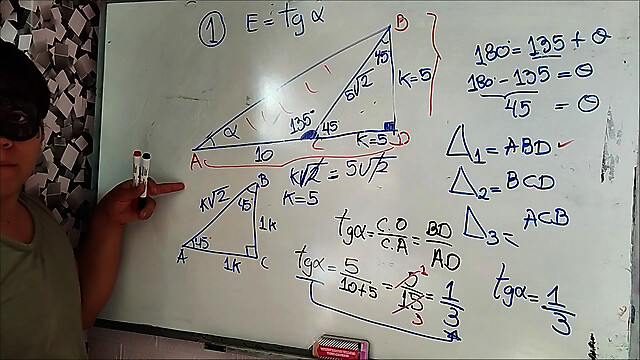 1 E = tgα
B
45
5√2
K=5
α
135
45
A
10
C
K=5
D
180 = 135 + θ
180 - 135 = θ
45 = θ
Δ1 = ABD
Δ2 = BCD
Δ3 = ACB
K√2 = 5√2
K=5
B
K√2
45
1K
45
A
1K
C
tgα = C.O/C.A = BD/AD
tgα = 5/10+5 = 5/15 = 1/3
1
3
tgα = 1/3